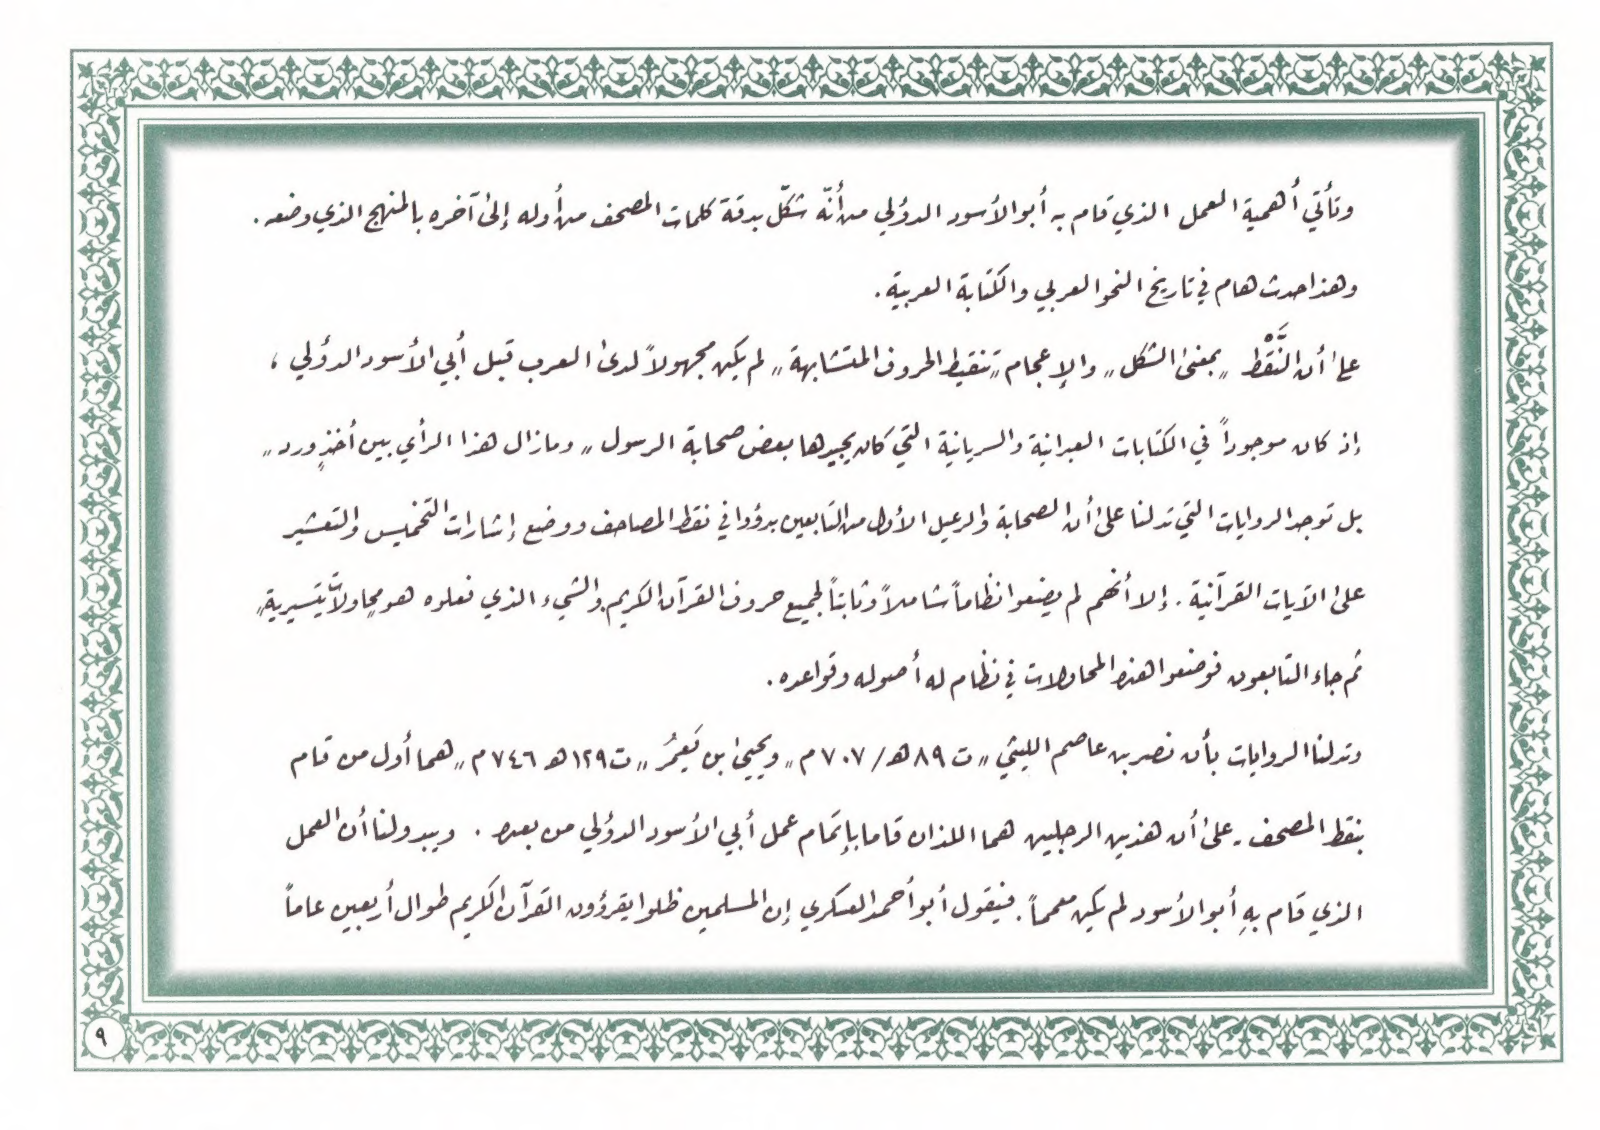 وتأتي أهمية العمل الذي قام به أبو الأسود الدؤلي من أنّه شكّل بدقة كلمات المصحف من أوله إلى آخره بالمنهج الذي وضعه .
وهذا حدث هام في تاريخ النحو العربي والكتابة العربية .
على أن النَّقْط „ بمعنى الشكل „ والإعجام „ تنقيط الحروف المتشابهة „ لم يكن مجهولاً لدى العرب قبل أبي الأسود الدؤلي ،
إذ كان موجوداً في الكتابات العبرانية والسريانية التي كان يجيدها بعض صحابة الرسول „ ومازال هذا الرأي بين أخذٍ ورد „
بل توجد الروايات التي تدلنا على أن الصحابة والرعيل الأول من التابعين بدؤوا في نقط المصاحف ووضع إشارات التخميس والتعشير
على الآيات القرآنية . إلا أنهم لم يضعوا نظاماً شاملاً وثابتاً لجميع حروف القرآن الكريم. والشيء الذي فعلوه هو محاولاتٌ تيسيرية،
ثم جاء التابعون فوضعوا هذه المحاولات في نظام له أصوله وقواعده .
وتدلنا الروايات بأن نصر بن عاصم الليثي „ ت ٨٩ هـ / ٧٠٧ م „ ويحيى ابن يَعمُر „ ت ١٢٩ هـ ٧٤٦ م „ هما أول من قام
بنقط المصحف - على أن هذين الرجلين هما اللذان قاما بإتمام عمل أبي الأسود الدؤلي من بعده . ويبدو لنا أن العمل
الذي قام بهِ أبو الأسود لم يكن معمماً . فيقول أبو أحمد العسكري إن المسلمين ظلوا يقرؤون القرآن الكريم طوال أربعين عاماً
٩